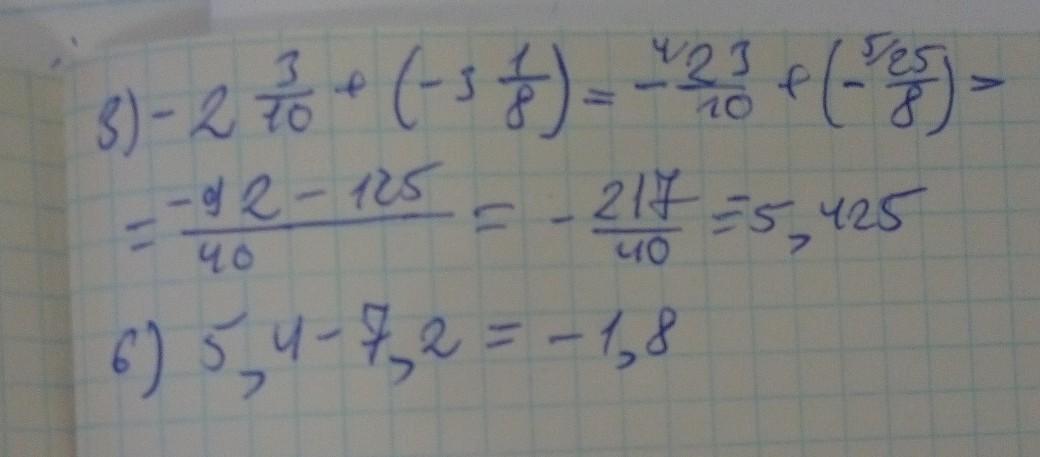 3) - 2 3/10 + (-3 1/8) = - 4/ 23/10 + (- 5/ 25/8) =
= (-92 - 125)/40 = - 217/40 = 5,425
6) 5,4 - 7,2 = -1,8